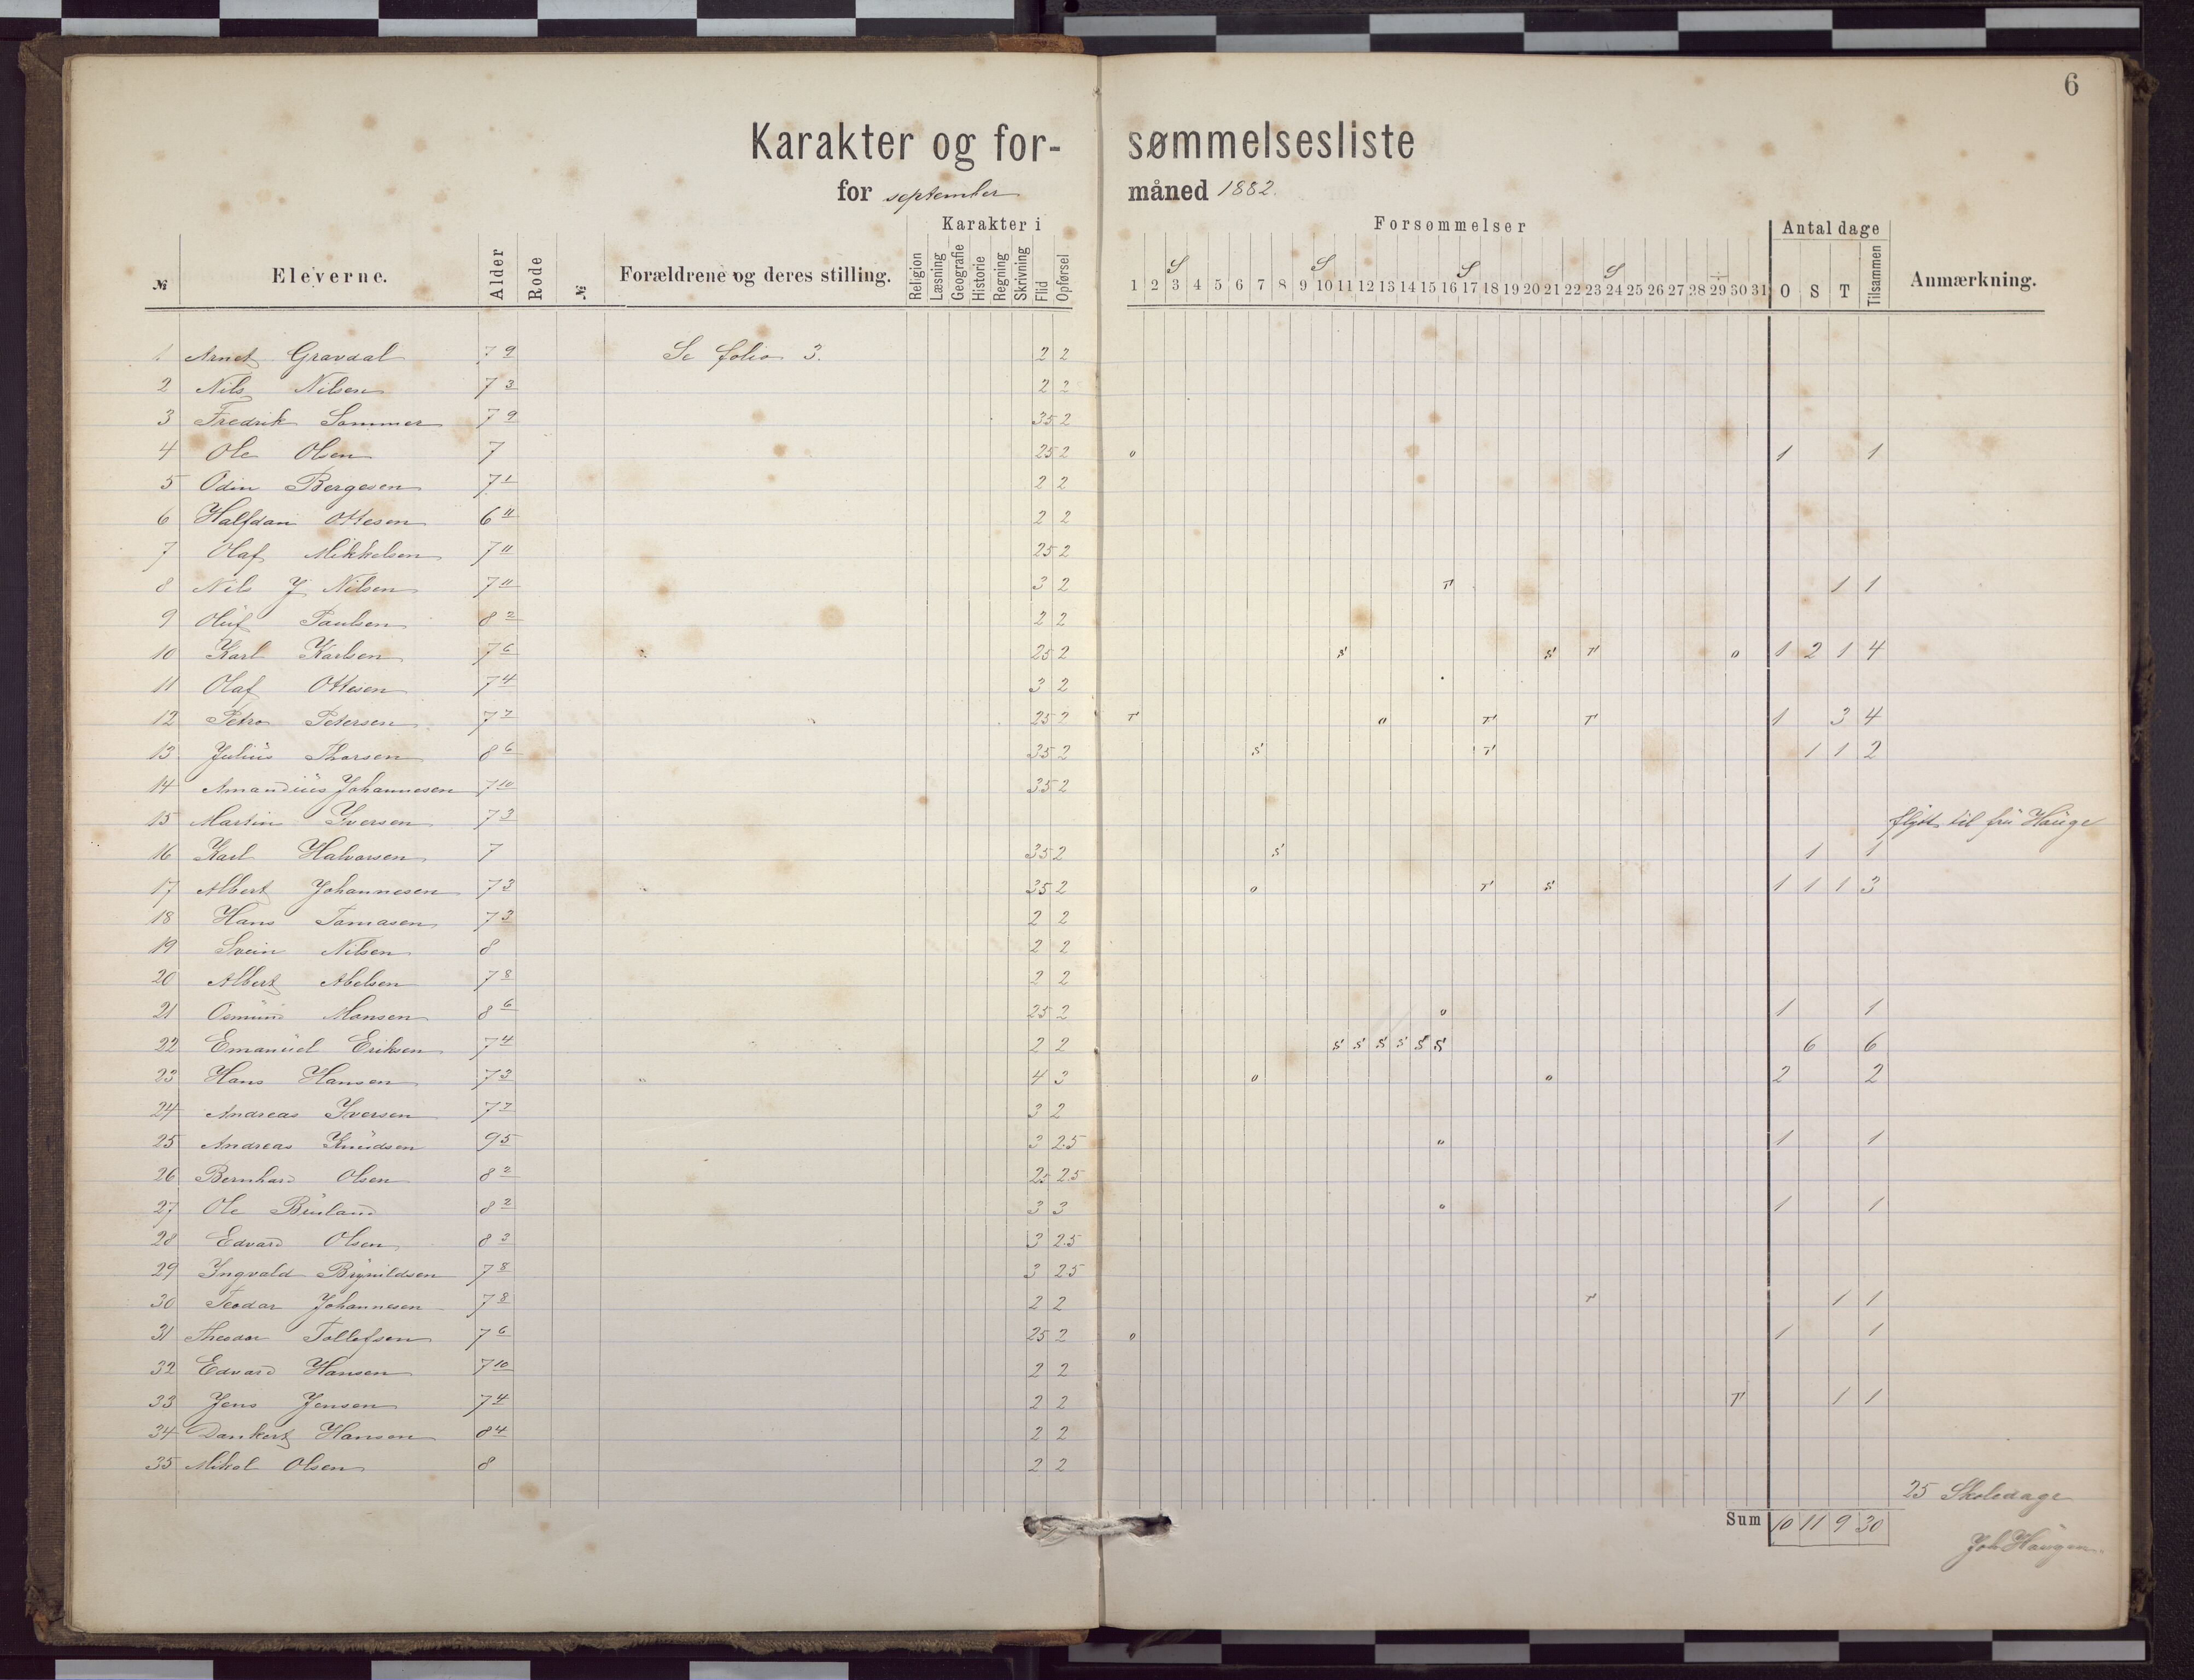 6
Karakter og for- sømmelsesliste
for september måned 1882.
Karakter i Forsømmelser Antal dage
№ Eleverne. Alder Rode № Forældrene og deres stilling. Religion Læsning Geografie Historie Regning Skrivning Flid Opførsel 1 2 3 4 5 6 7 8 9 10 11 12 13 14 15 16 17 18 19 20 21 22 23 24 25 26 27 28 29 30 31 O S T Tilsammen Anmærkning.
S S S S
1 Arnet Gravdal 7 9 Se folio 3. 2 2
2 Nils Nilsen 7 3 2 2
3 Fredrik Sommer 7 9 35 2
4 Ole Olsen 7 25 2 o 1 1
5 Odin Bergesen 7 1 2 2
6 Halfdan Ottesen 6 11 2 2
7 Olaf Mikkelsen 7 11 25 2
8 Nils J Nilsen 7 11 3 2 T 1 1
9 Oluf Paulsen 8 2 2 2
10 Karl Karlsen 7 6 25 2 S S T o 1 2 1 4
11 Olaf Ottesen 7 4 3 2
12 Petro Petersen 7 7 25 2 T o T T 1 3 4
13 Julius Thorsen 8 6 35 2 S T 1 1 2
14 Amandius Johannesen 7 10 35 2
15 Martin Iversen 7 3 flytt til fru Hauge
16 Karl Halvorsen 7 35 2 S 1 1
17 Albert Johannesen 7 3 35 2 o T S 1 1 1 3
18 Hans Tomasen 7 3 2 2
19 Svein Nilsen 8 2 2
20 Albert Abelsen 7 8 2 2
21 Osmund Monsen 8 6 25 2 o 1 1
22 Emanuel Eriksen 7 4 2 2 S S S S S S 6 6
23 Hans Hansen 7 3 4 3 o o 2 2
24 Andreas Iversen 7 7 3 2
25 Andreas Knudsen 9 5 3 2.5 o 1 1
26 Bernhard Olsen 8 2 25 2.5
27 Ole Buland 8 2 3 3 o 1 1
28 Edvard Olsen 8 3 3 2.5
29 Ingvald Brynildsen 7 8 3 25
30 Teodor Johannesen 7 8 2 2 T 1 1
31 Theodor Tollefsen 7 6 25 2 o 1 1
32 Edvard Hansen 7 10 2 2
33 Jens Jensen 7 4 2 2 T 1 1
34 Dankert Hansen 8 4 2 2
35 Mikal Olsen 8 2 2
25 Skoledage
Sum 10 11 9 30
Joh Haugen.